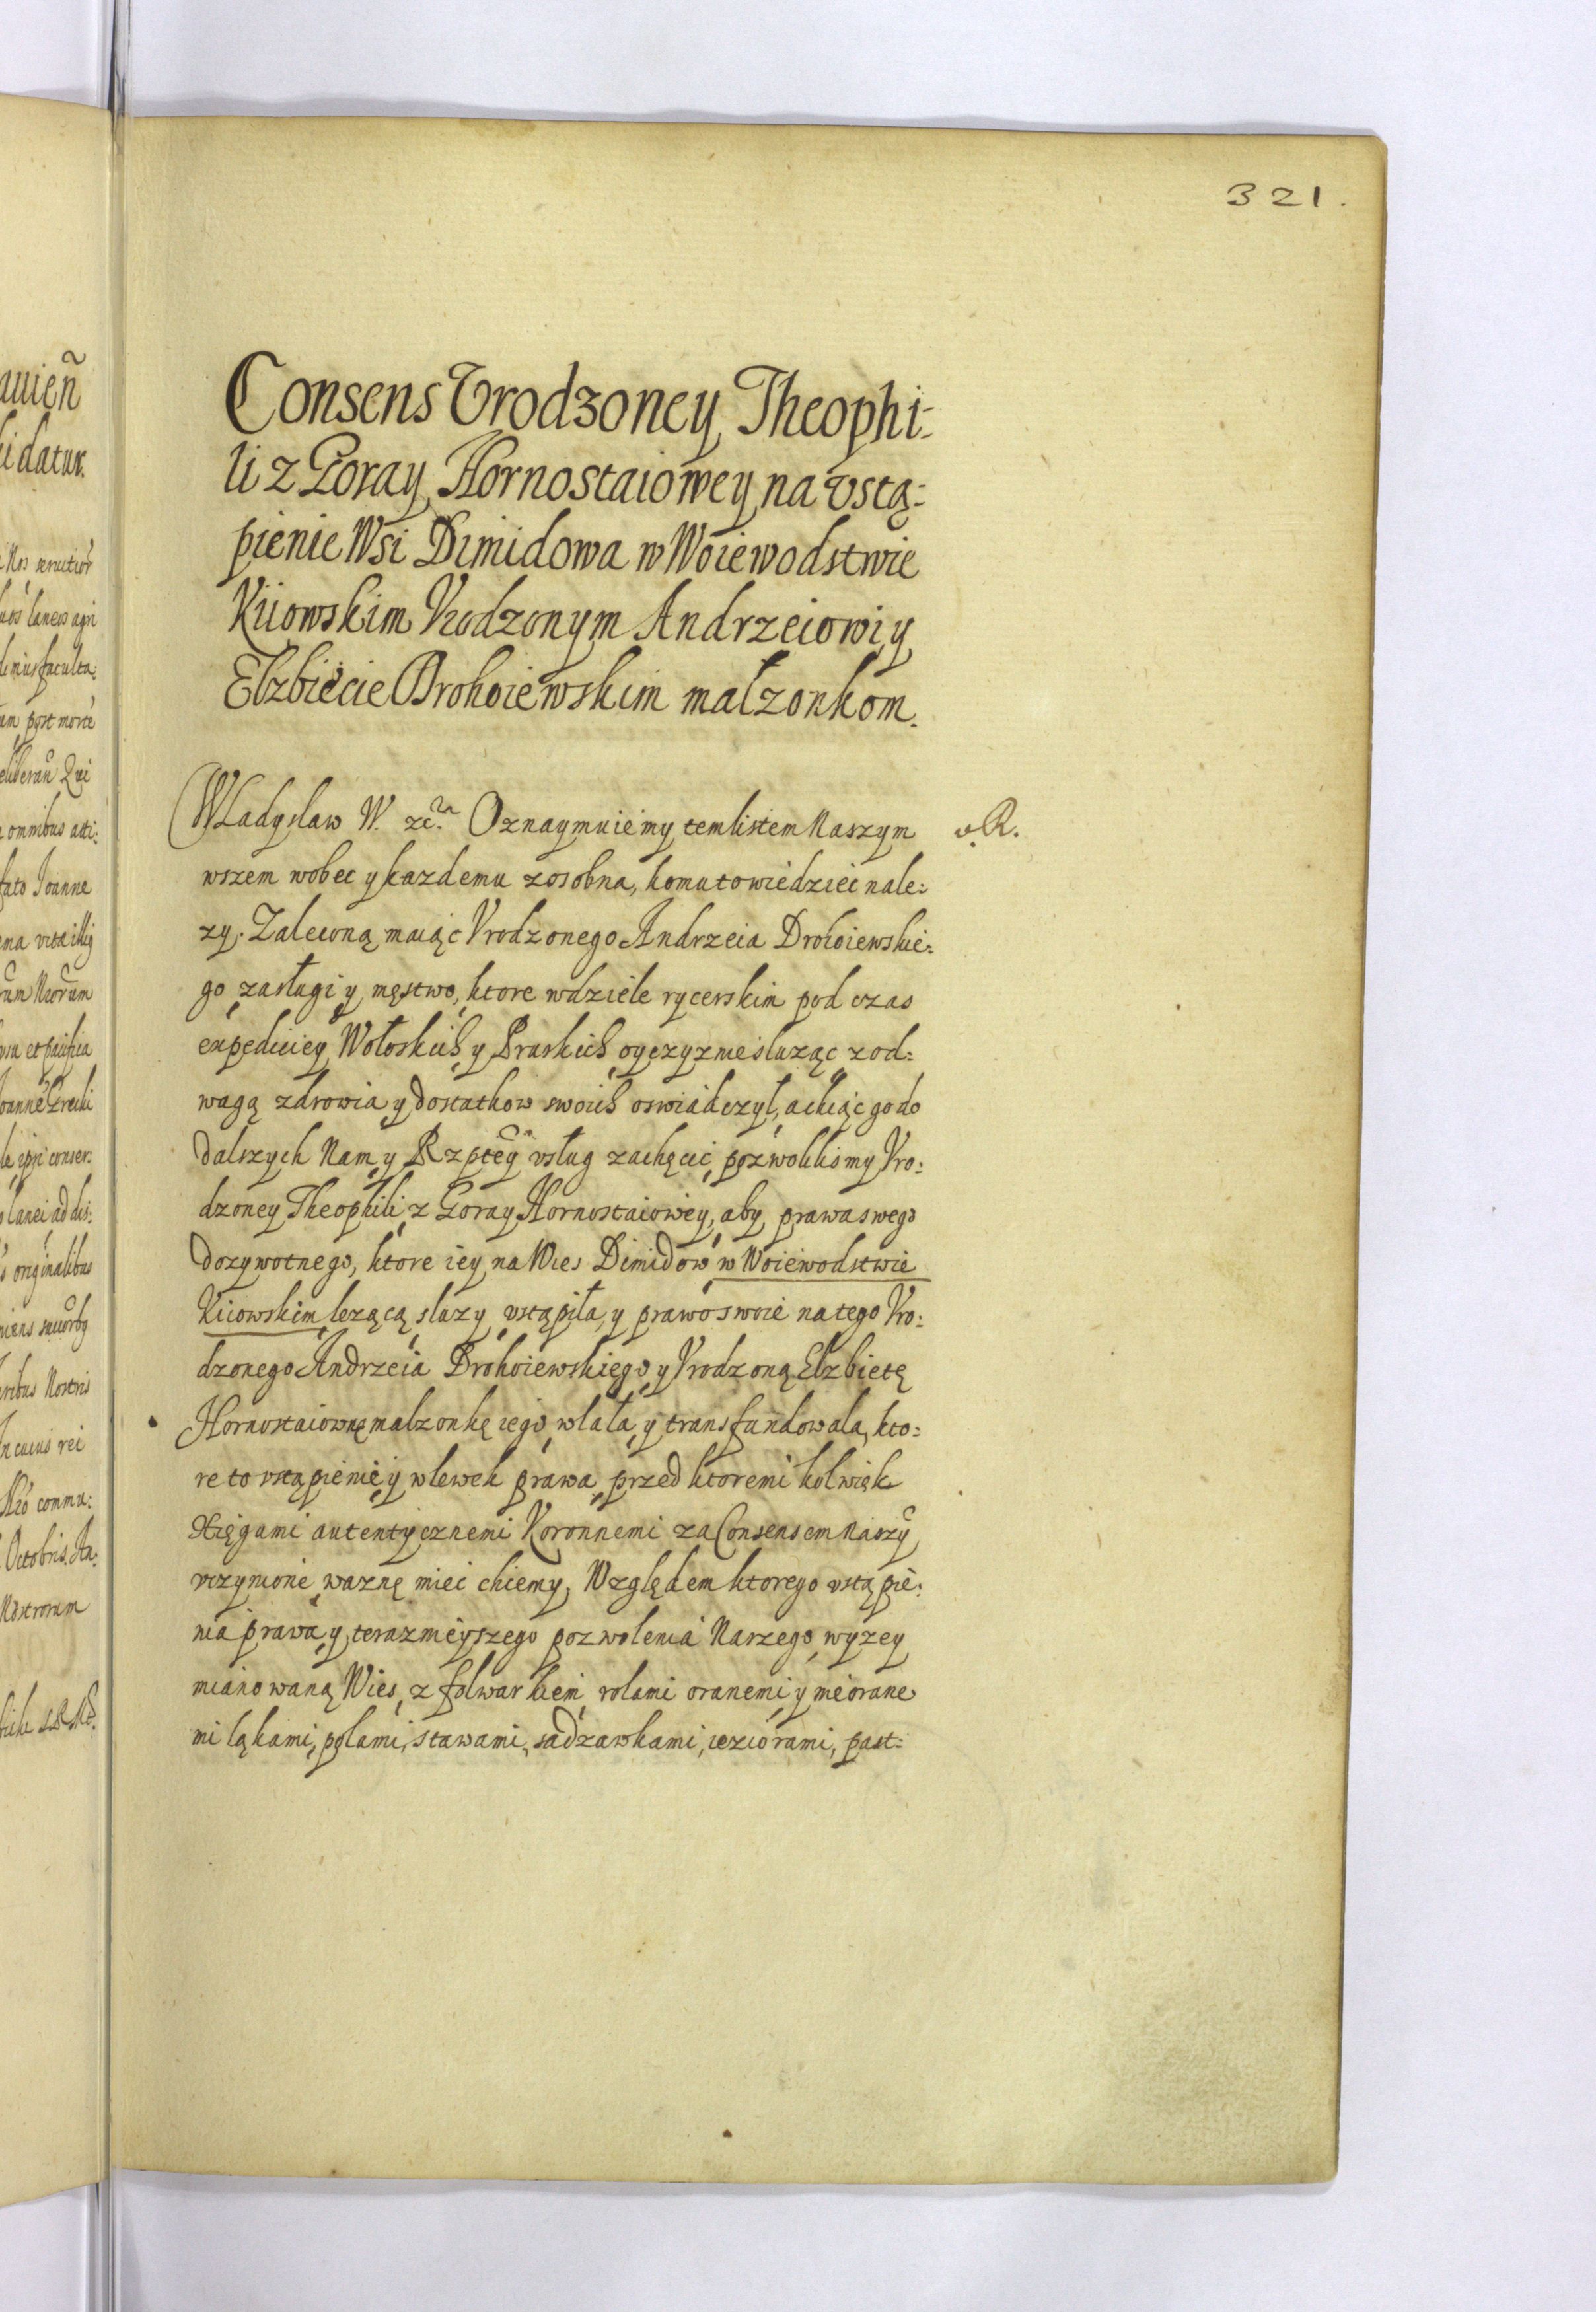 321.
Consens Vrodzoney Theophi:
li z Goray Hornostaiowey na vstą:
pienie Wsi Dimidowa w Woiewodstwie
Kiiowskim Vrodzonym Andrzeiowi y
Elzbiecie Drohoiewskim małzonkom.
Wladyslaw W. zc. Oznaymuiemy tem listem Naszym
R.
wszem wobec y kazdemu zosobna, komu to wiedziec nale:
zy. Zaleconą maiąc Vrodzonego Andrzeia Drohoiewskie:
go zasługi y męstwo, ktore w dziele rycerskim pod czas
expediciey Wołoskich y Pruskich oyczyznie sluząc z od:
wagą zdrowia y dostatkow swoich oswiadczył, a chcąc go do
dalszych Nam y Rzptey vsług zachęcic pozwolilismy Vro:
dzoney Theophili z Goray Hornostaiowey, aby prawa swego
dozywotnego, ktore iey na Wies Dimidow w Woiewodstwie
Kiiowskim lezącą sluzy vstąpiła, y prawo swoie na tego Vro:
dzonego Andrzeia Drohoiewskiego y Vrodzoną Elzbietę
Hornostaiownę malzonkę iego wlała y transfundowala, kto:
re to vstąpienie y wlewek prawa przed ktoremi kolwiek
Xięgami autentycznemi Koronnemi za Consensem Naszỹ
vczynione wazne miec chcemy. Względem ktorego vstąpie:
nia prawa y teraznieyszego pozwolenia Naszego wyzey
mianowaną Wies z folwarkiem rolami oranemi y nieorane
mi łąkami, polami, stawami, sadzawkami, ieziorami, past:
auień
i datur.
laneos agri
faculta:
post morte
Qui
omnibus
fato Ioanne
et
conser:
lanei ad dis:
originalibus
Nostris
In cuius rei
commu:
Octobris. An:
Nostrorum